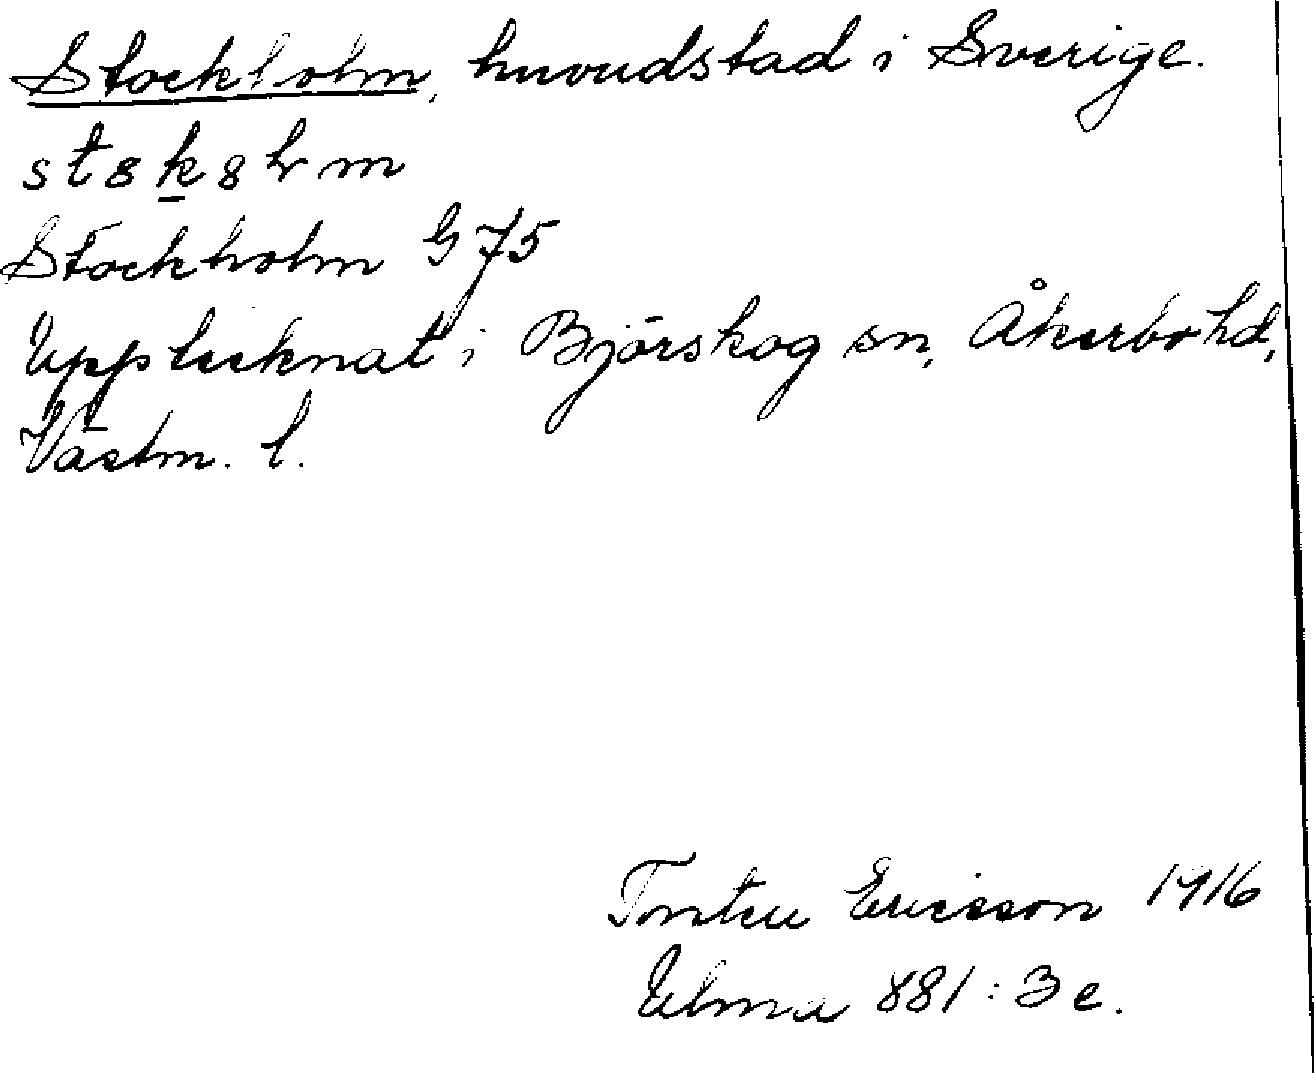 Stockholm, huvudstad i Sverige.
st8k8lm
Stockholm G 75
Upptecknat i Björskog sn, Åkerbo hd,
Västm. l.
Torsten Ericsson 1916
Ulma 881:3 e.